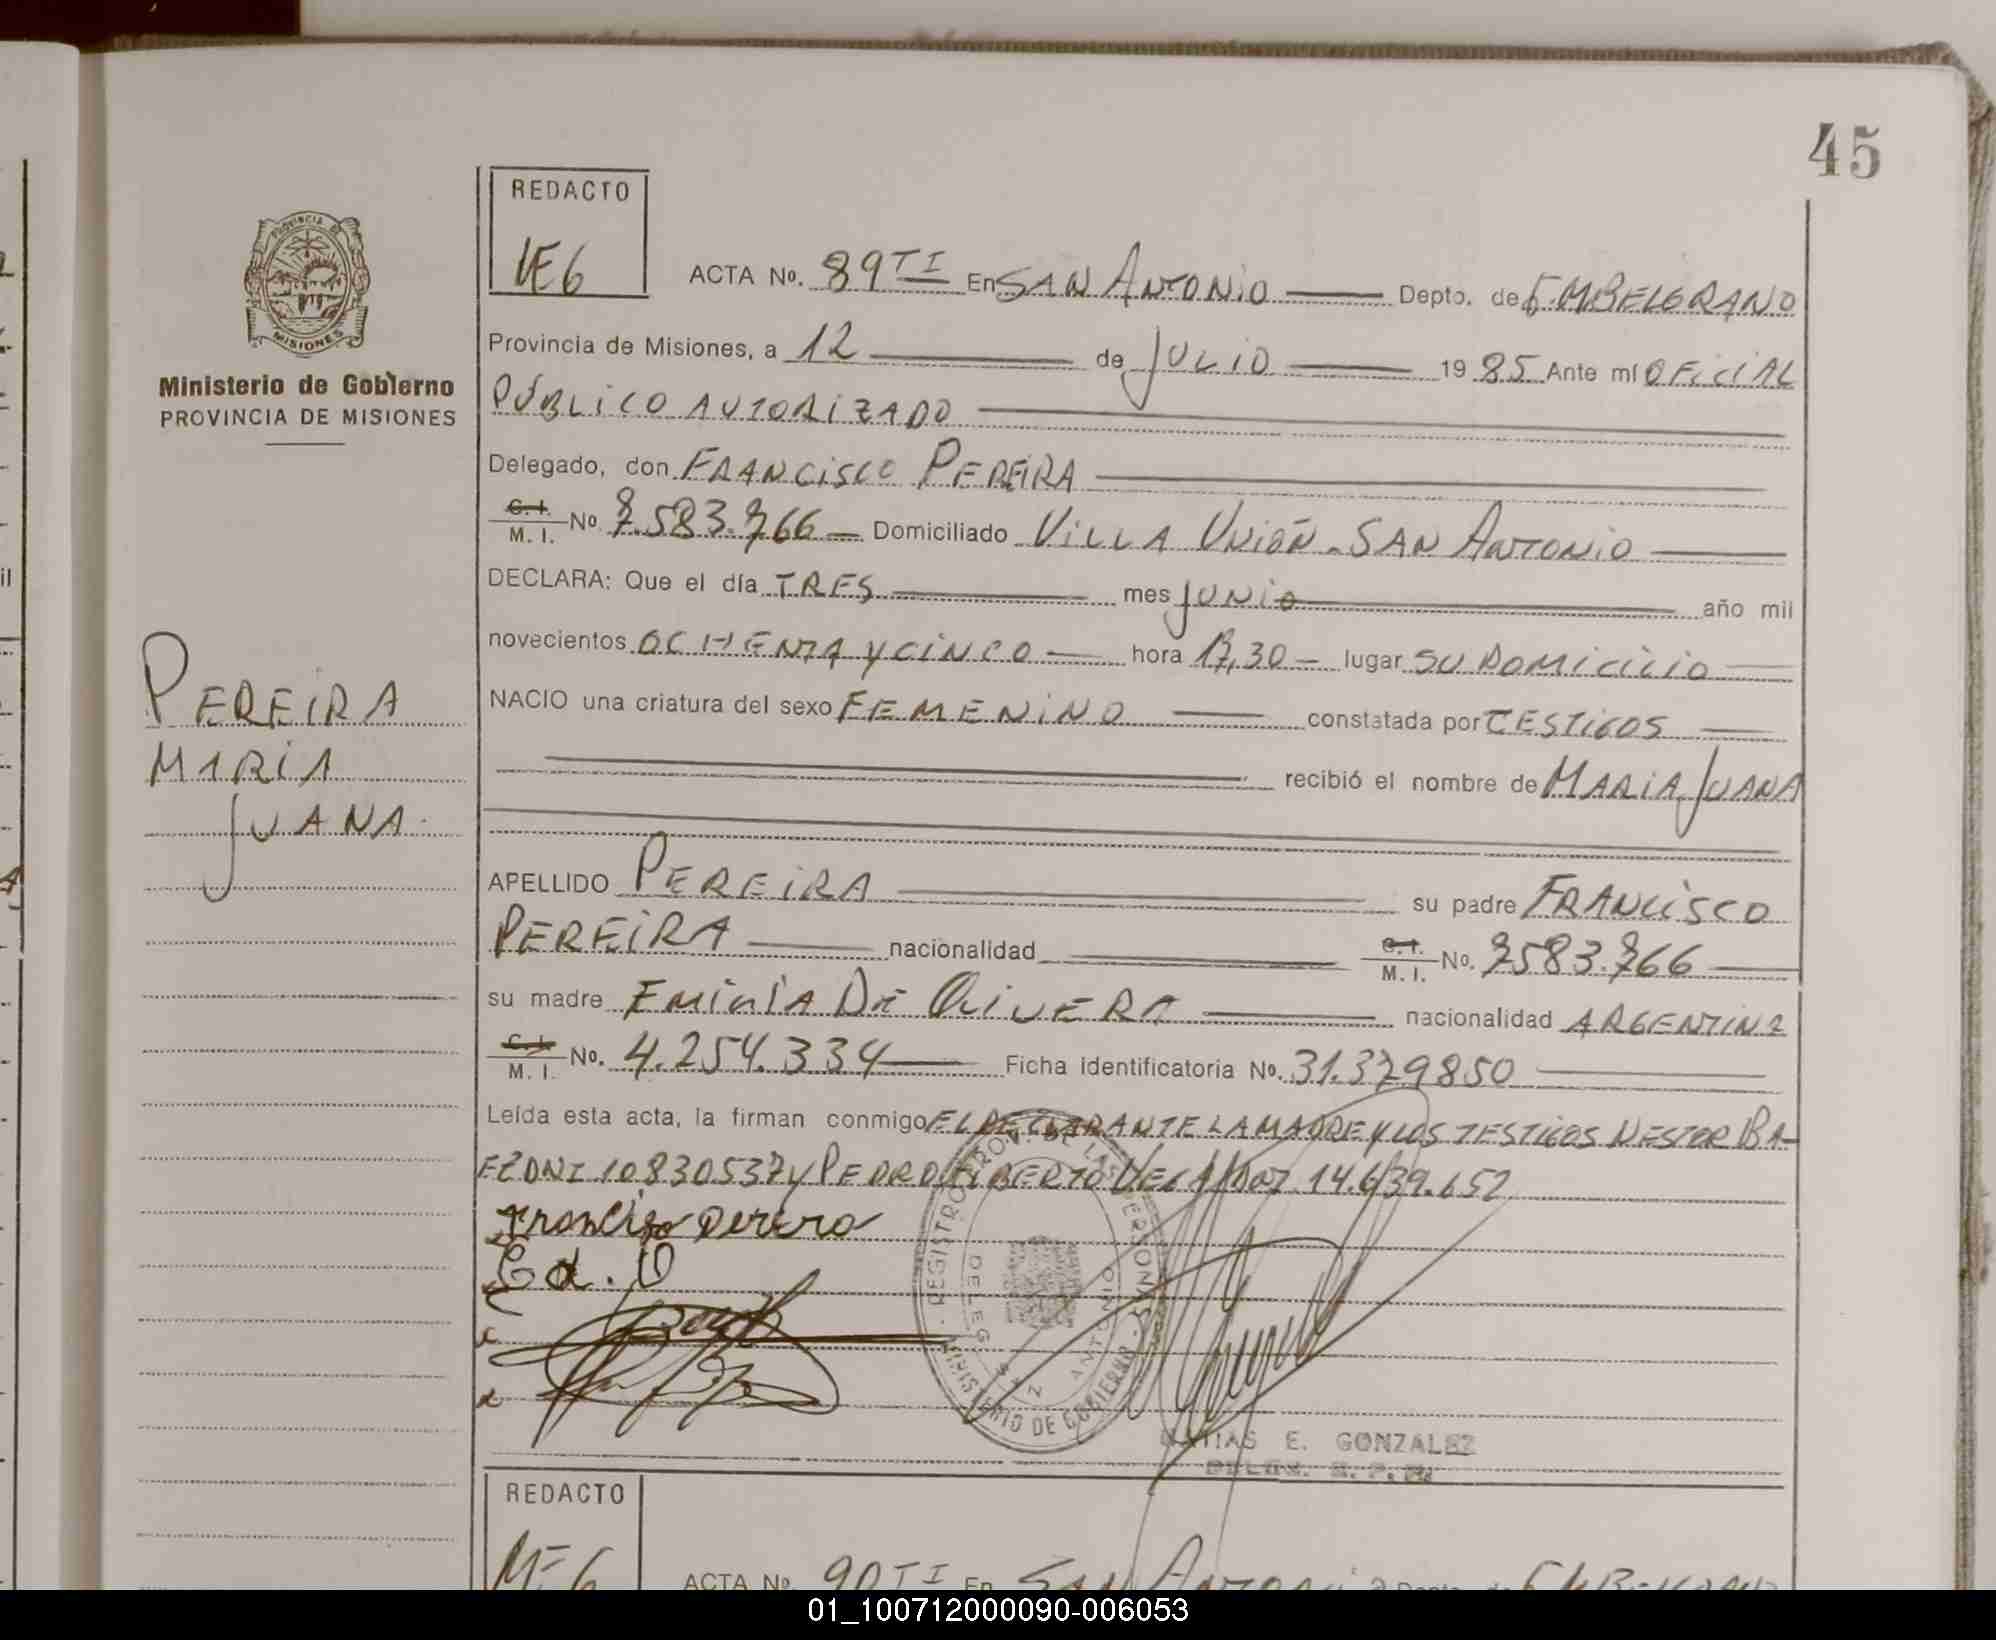 45
REDACTO
ME6
ACTA No. 89 TI En SAN ANTONIO Depto. de G.M.BELGRANO
Provincia de Misiones, a 12 de JULIO 19 85 Ante mí OFICIAL
PÚBLICO AUTORIZADO
Delegado, don FRANCISCO PEREIRA
C. I. M. I. No 7.583.766 Domiciliado VILLA UNIÓN - SAN ANTONIO
DECLARA: Que el día TRES mes JUNIO año mil
novecientos OCHENTA Y CINCO hora 17,30 lugar SU DOMICILIO
NACIO una criatura del sexo FEMENINO constatada por TESTIGOS
recibió el nombre de MARIA JUANA
APELLIDO PEREIRA su padre FRANCISCO
PEREIRA nacionalidad C. I. M. I. No. 7583.766
su madre EMILIA DE OLIVERA nacionalidad ARGENTINA
C. I. M. I. No. 4.254.334 Ficha identificatoria No. 31.379850
Leída esta acta, la firman conmigo EL DECLARANTE LA MADRE Y LOS TESTIGOS NESTOR BA-
EZ DNI 10830537 y PEDRO ALBERTO VEGA DNI 14.639.652
Francisco Perera
E d. O
REGISTRO PROV. DE LAS PERSONAS
MINISTERIO DE GOBIERNO
DELEG. SAN ANTONIO
MATIAS E. GONZALEZ
DELEG. R. P. P.
PROVINCIA DE
MISIONES
Ministerio de Gobierno
PROVINCIA DE MISIONES
PEREIRA
MARIA
JUANA
REDACTO
ME6
ACTA No. 90 TI En SAN ANTONIO Depto. de G.M.BELGRANO
01_100712000090-006053